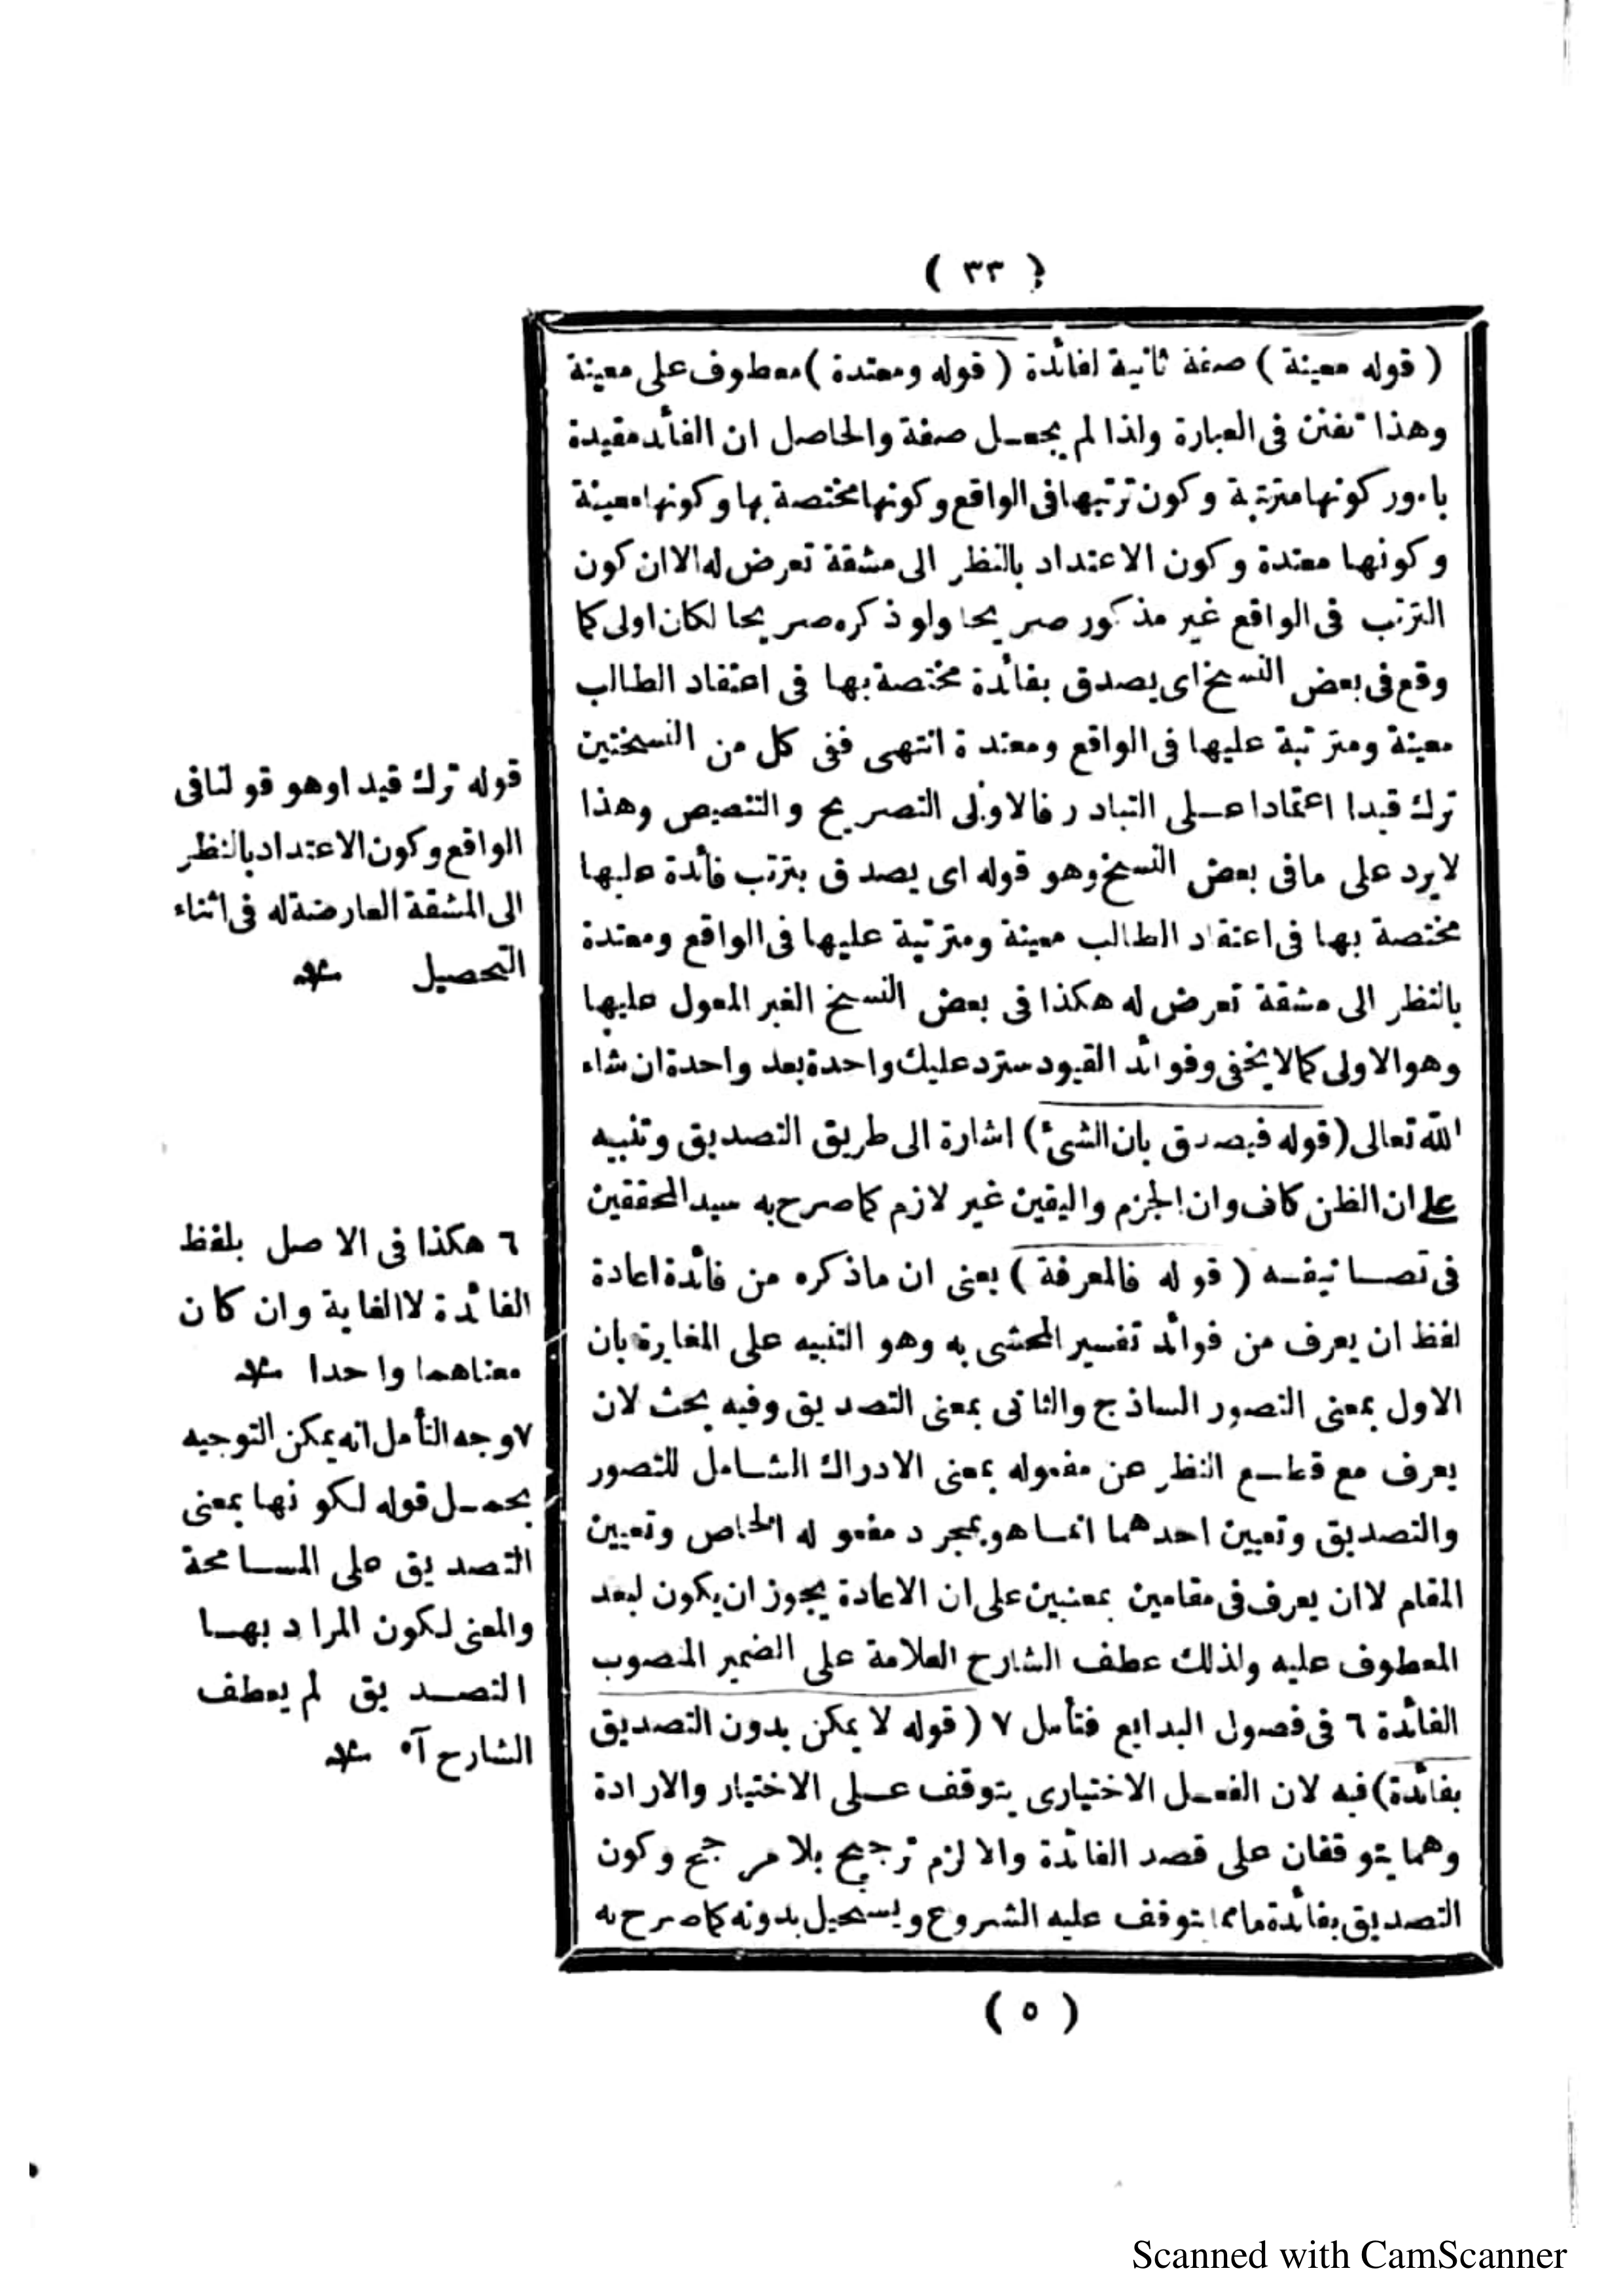 ( ٣٣ )
( قوله معينة ) صفة ثانية لفائدة ( قوله ومعتدة ) معطوف على معينة
وهذا تفنن فى العبارة ولذا لم يجعل صفة والحاصل ان الفائد مقيدة
بامور كونها مترتبة وكون ترتبها فى الواقع وكونها مختصة بها وكونها معينة
وكونها معتدة وكون الاعتداد بالنظر الى مشقة تعرض له الا ان كون
الترتب فى الواقع غير مذكور صريحا ولو ذكره صريحا لكان اولى كما
وقع فى بعض النسخ اى يصدق بفائدة مختصة بها فى اعتقاد الطالب
معينة ومترتبة عليها فى الواقع ومعتدة انتهى ففى كل من النسختين
ترك قيدا اعتمادا على التبادر فالاولى التصريح والتنصيص وهذا
لا يرد على ما فى بعض النسخ وهو قوله اى يصدق بترتب فائدة عليها
مختصة بها فى اعتقاد الطالب معينة ومترتبة عليها فى الواقع ومعتدة
بالنظر الى مشقة تعرض له هكذا فى بعض النسخ الغير المعول عليها
وهو الاولى كما لا يخفى وفوائد القيود سترد عليك واحدة بعد واحدة ان شاء
الله تعالى ( قوله فيصدق بان الشئ ) اشارة الى طريق التصديق وتنبيه
على ان الظن كاف وان الجزم واليقين غير لازم كما صرح به سيد المحققين
فى تصانيفه ( قوله فالمعرفة ) يعنى ان ما ذكره من فائدة اعادة
لفظ ان يعرف من فوائد تفسير المحشى به وهو التنبيه على المغايرة بان
الاول بمعنى التصور الساذج والثانى بمعنى التصديق وفيه بحث لان
يعرف مع قطع النظر عن مفعوله بمعنى الادراك الشامل للتصور
والتصديق وتعيين احدهما انما هو بمجرد مفعوله الخاص وتعيين
المقام لا ان يعرف فى مقامين بمعنيين على ان الاعادة يجوز ان يكون لبعد
المعطوف عليه ولذلك عطف الشارح العلامة على الضمير المنصوب
الفائدة ٦ فى فصول البدايع فتأمل ٧ ( قوله لا يمكن بدون التصديق
بفائدة ) فيه لان الفعل الاختيارى يتوقف على الاختيار والارادة
وهما يتوقفان على قصد الفائدة والا لزم ترجيح بلا مرجح وكون
التصديق بفائدة ما مما يتوقف عليه الشروع ويستحيل بدونه كما صرح به
( ٥ )
قوله ترك قيدا وهو قولنا فى
الواقع وكون الاعتداد بالنظر
الى المشقة العارضة له فى اثناء
التحصيل
٦ هكذا فى الاصل بلفظ
الفائدة لا الغاية وان كان
معناهما واحدا
٧ وجه التأمل انه يمكن التوجيه
بحمل قوله لكونها بمعنى
التصديق على المسامحة
والمعنى لكون المراد بها
التصديق لم يعطف
الشارح آه
Scanned with CamScanner